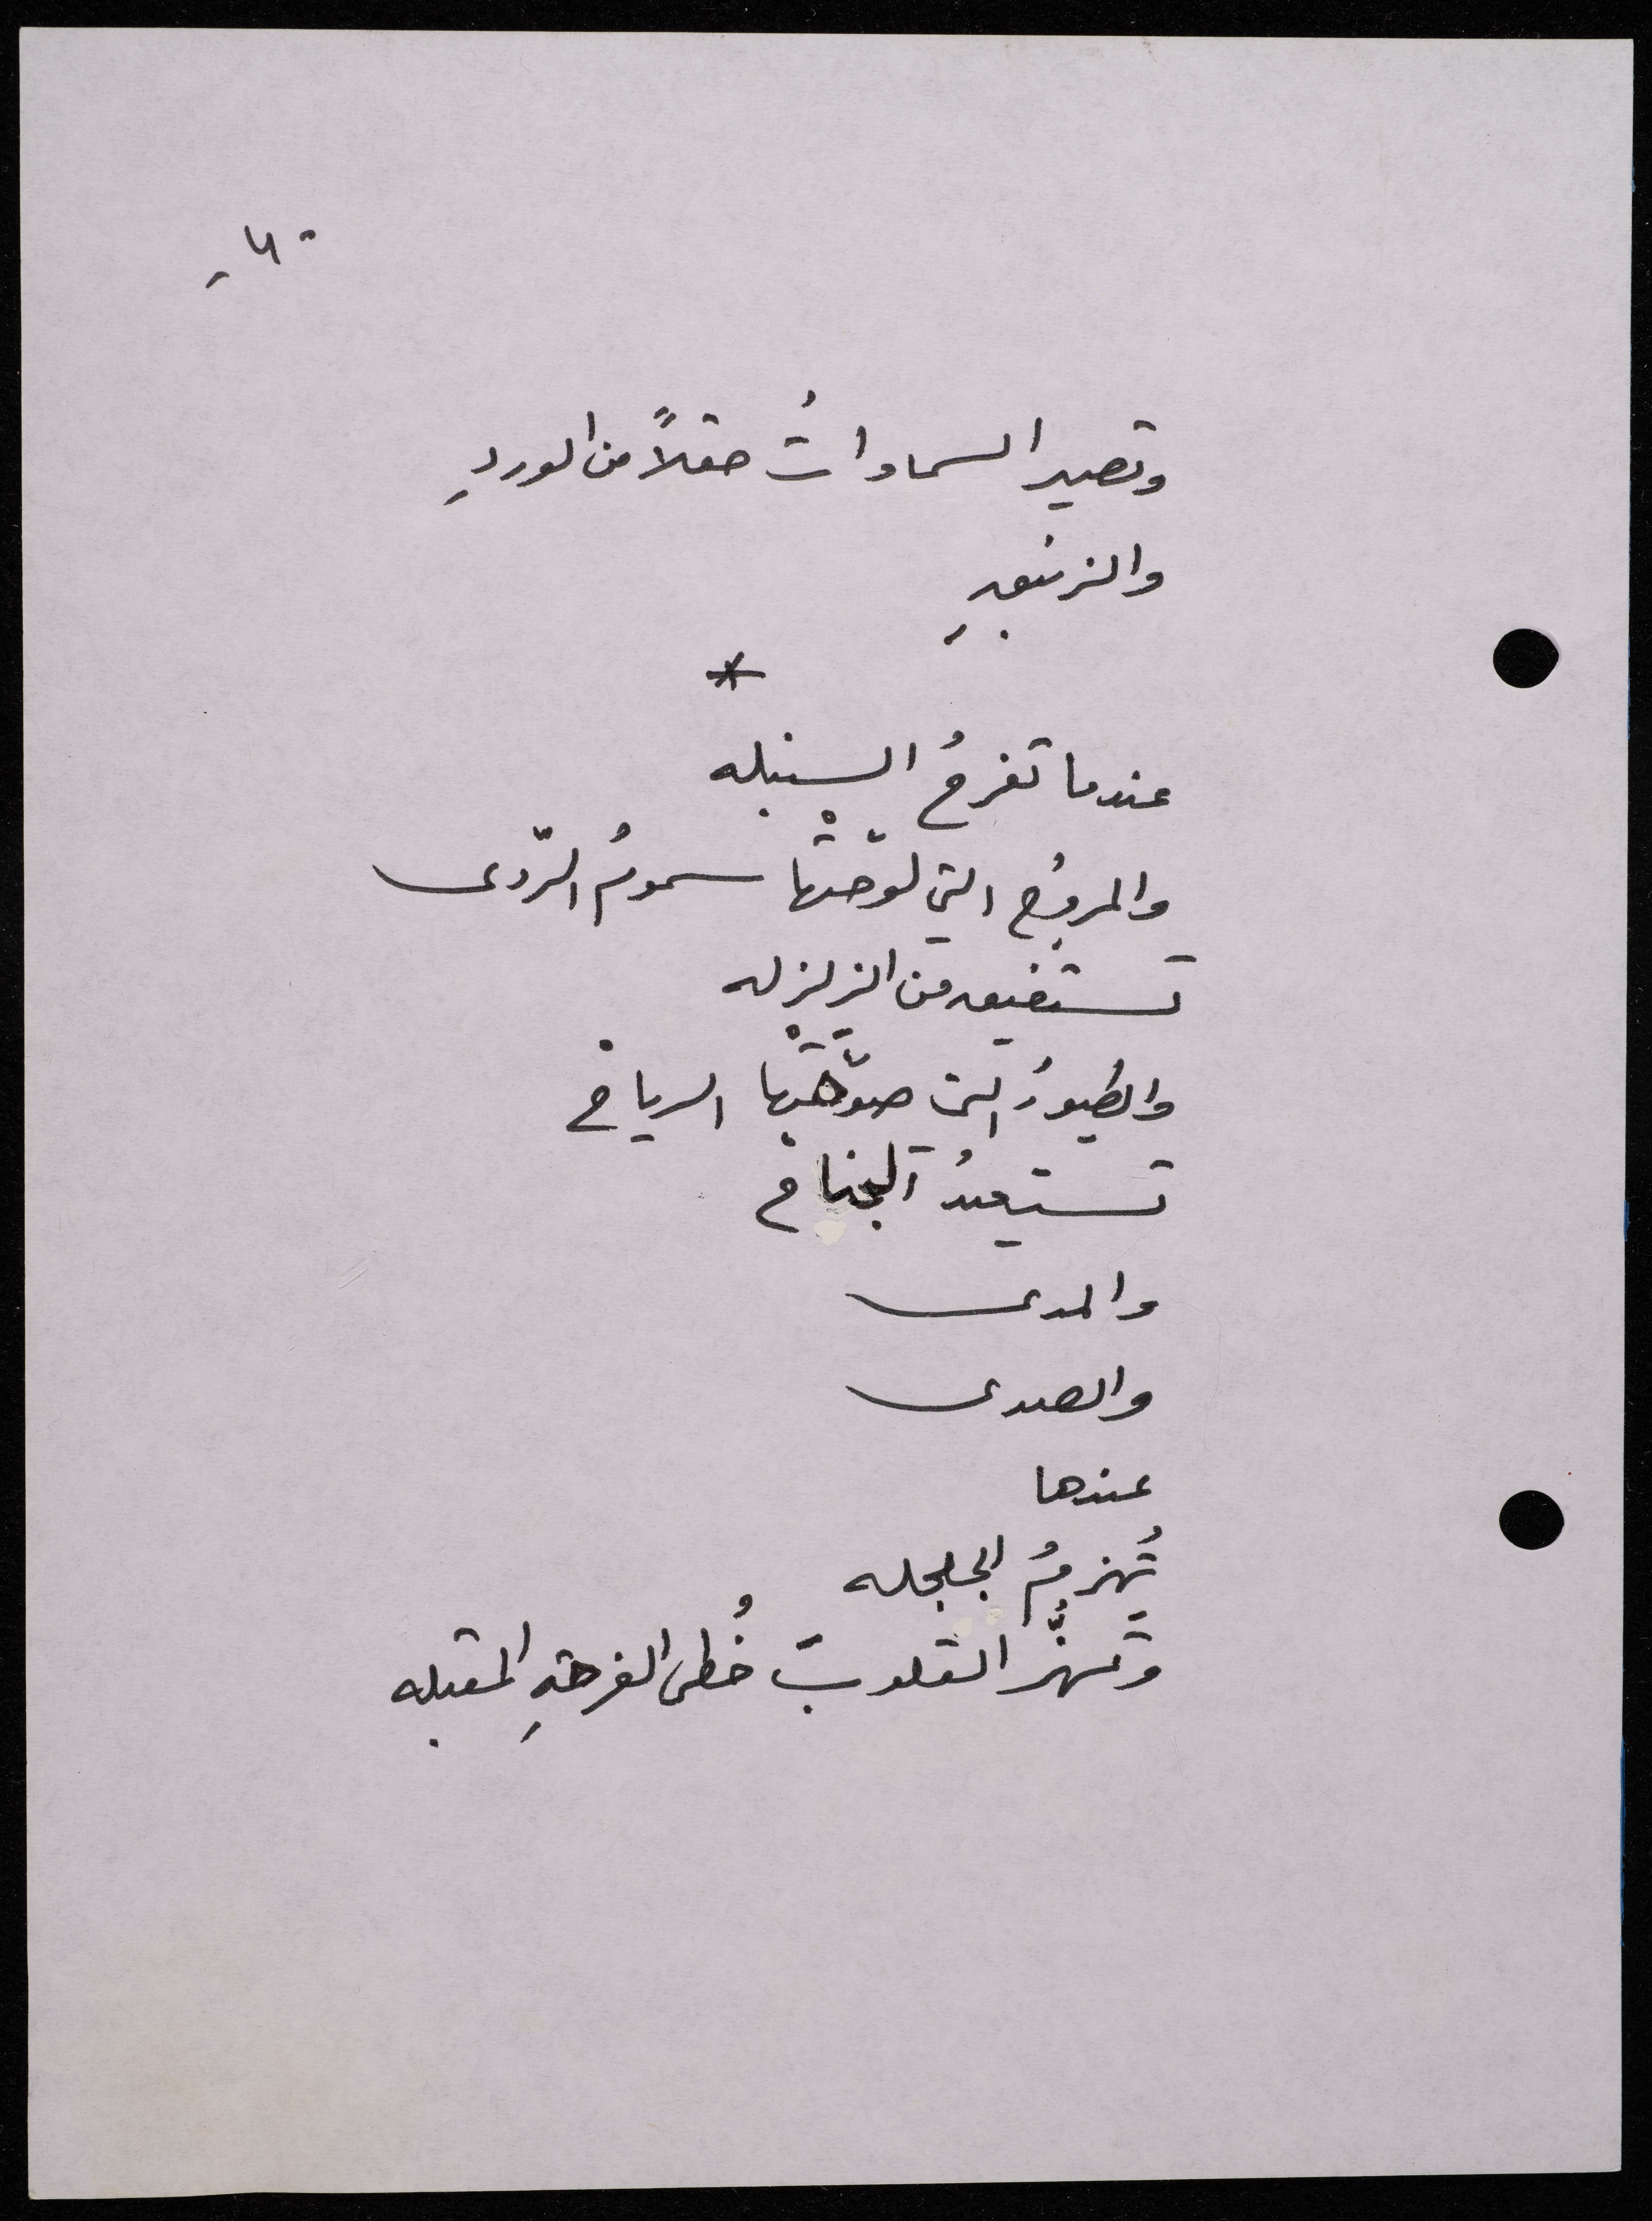 - ٤ -
وتصير السماواتُ حقلاً من الوردِ
والزنبقِ
*
عندما تفرحُ السنبله
والمروُج التي لوّحتْها سمومُ الرّدى
تستفيق من الزلزله
والطيورُ التي صوّحَتْها الرياح
تستعيدُ الجناح
والمدى
والصدى
عندها
تُهزمُ الجلجله
وتهزُّ القلوبَ خُطى الفرحةِ المقبله